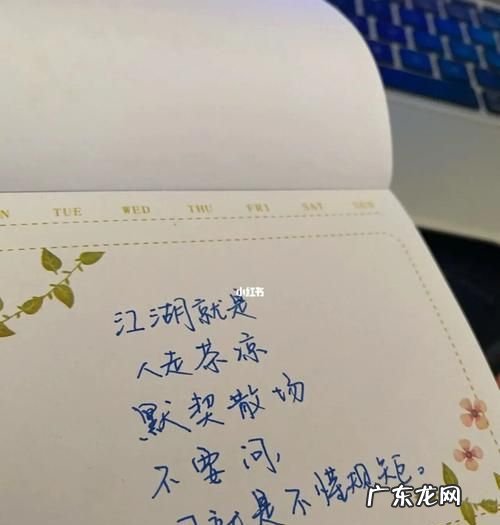 TUE WED THU FRI SAT SUN
小红书
江湖就是
人走茶凉
默契散场
不要问,
就是不懂规矩。
广东龙网